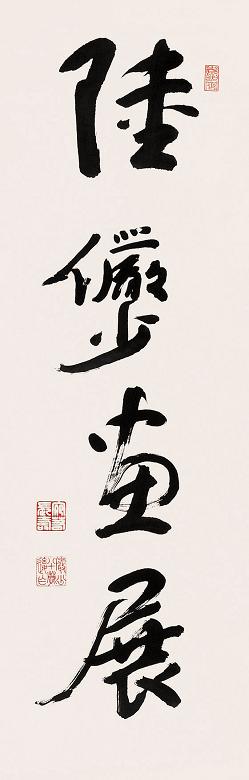 陸儼少画展